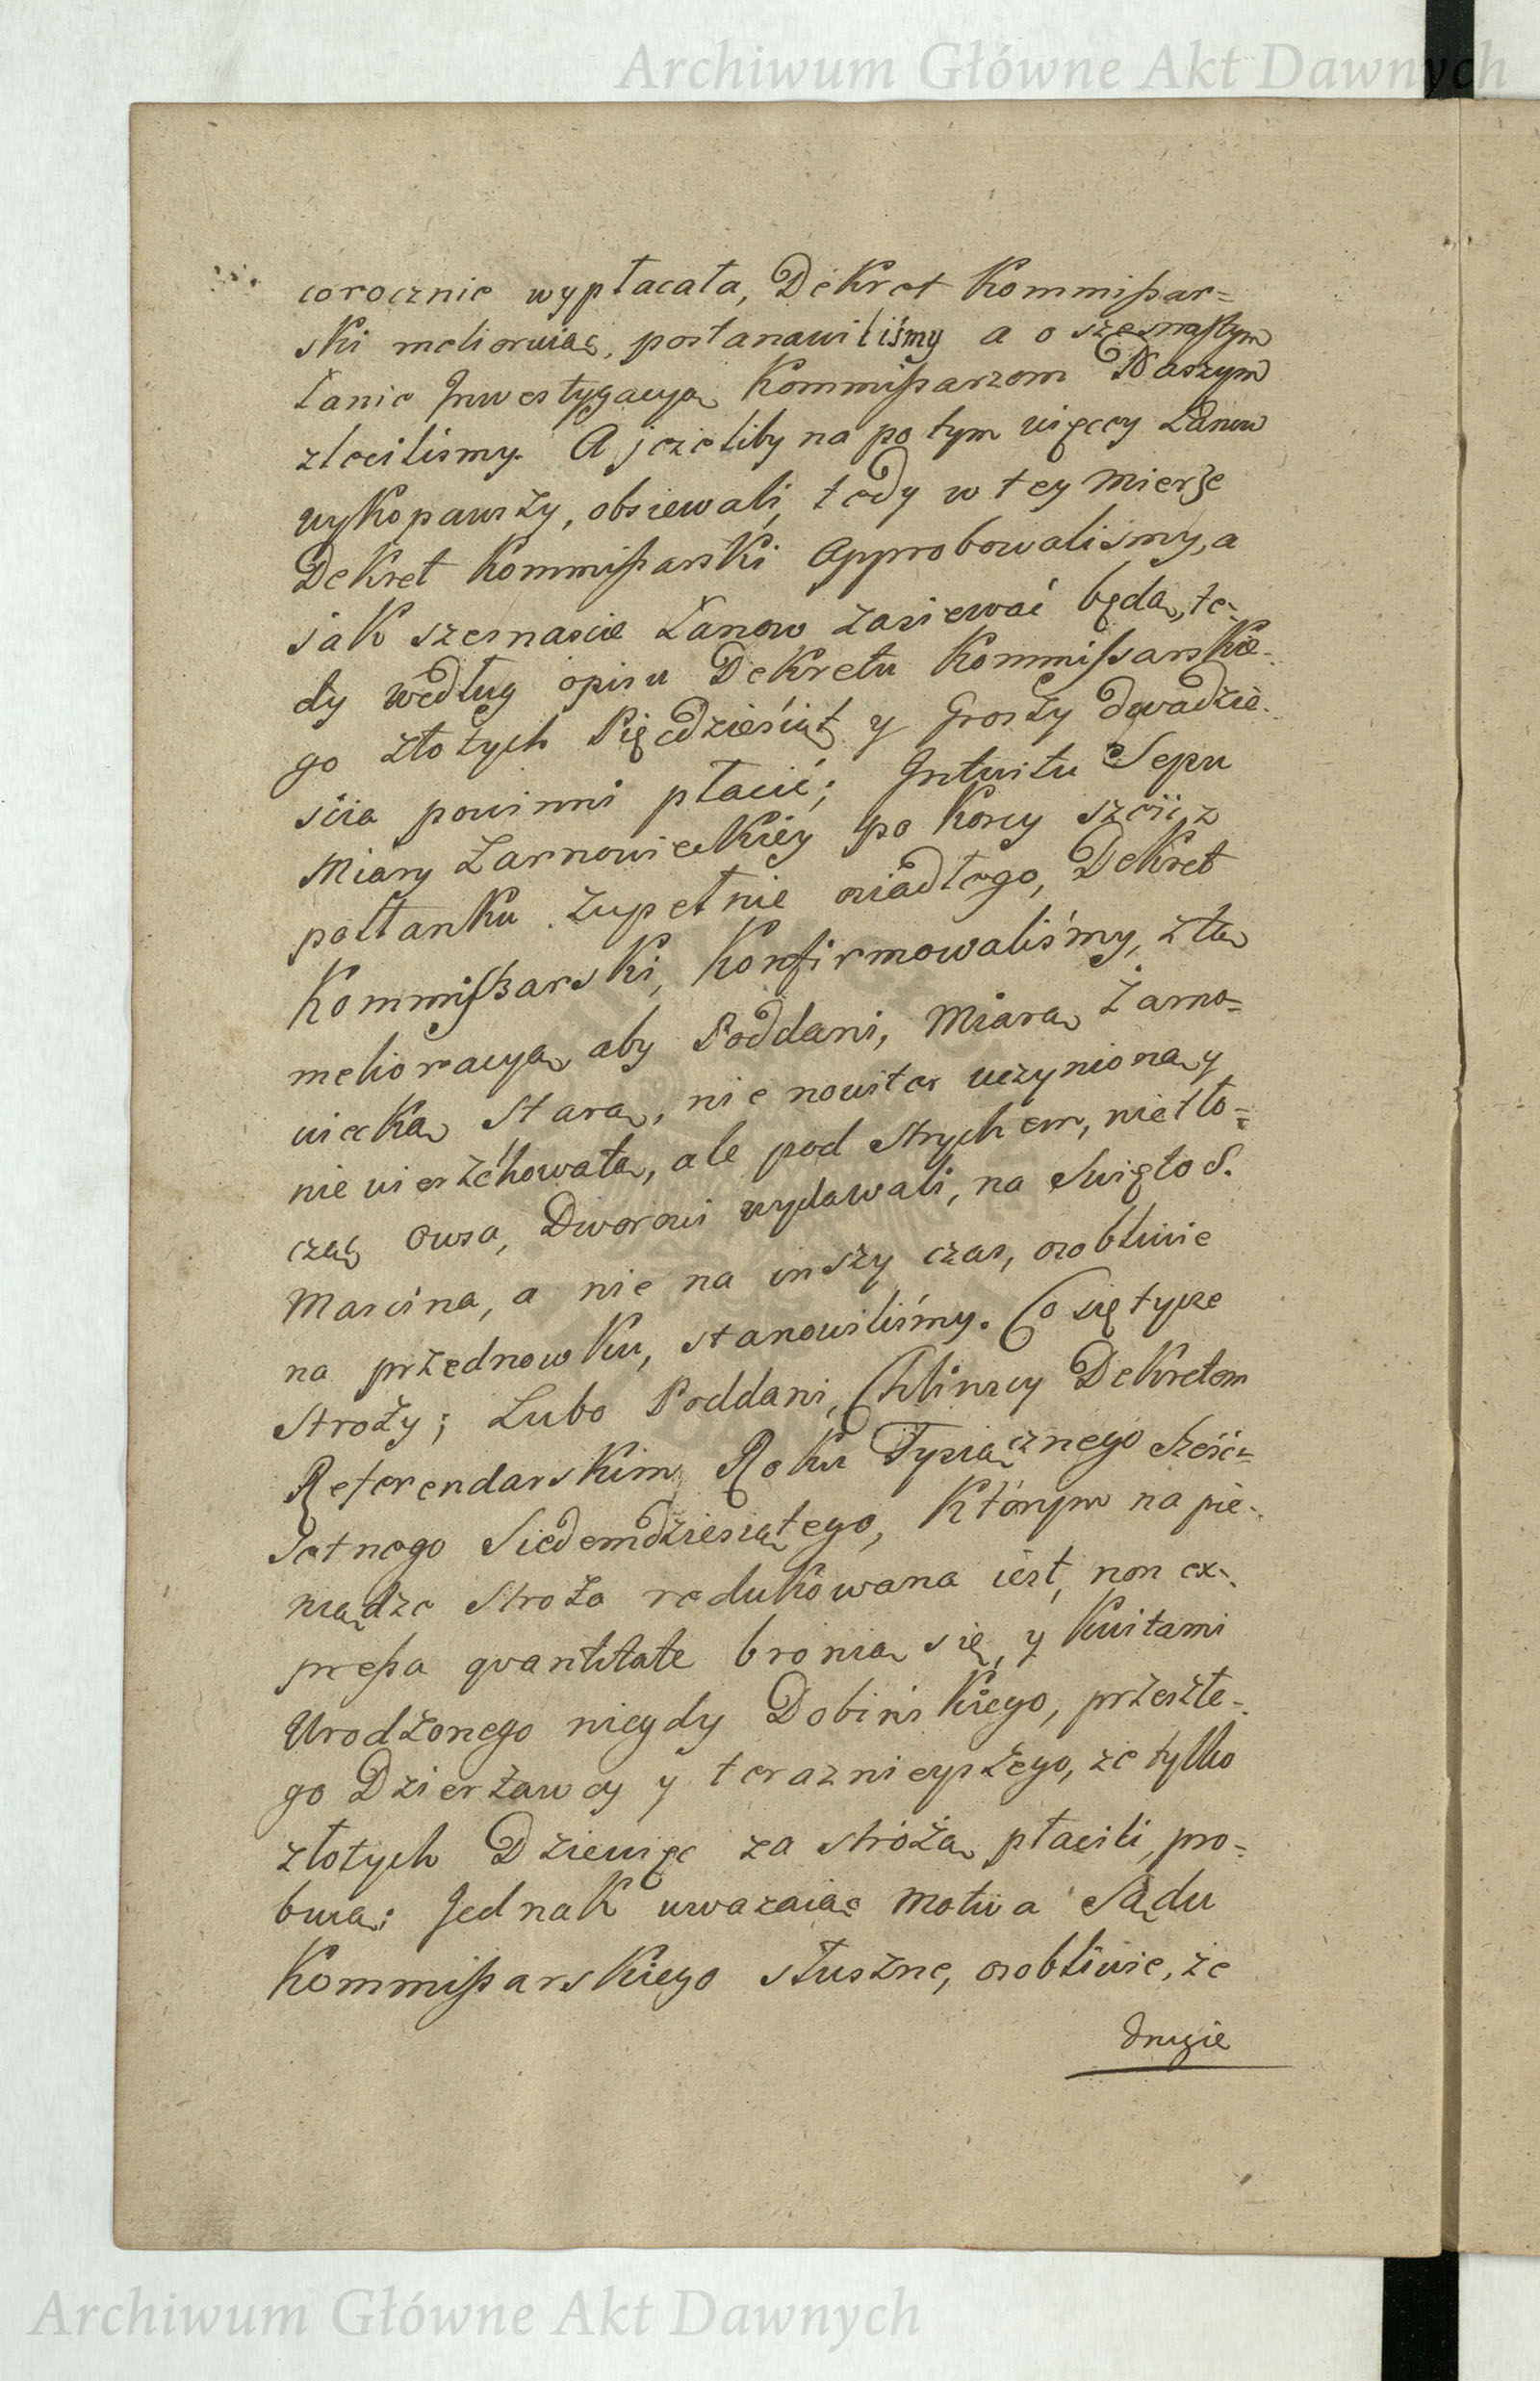 Archiwum Główne Akt Dawnych
corocznie wypłacała, Dekret Kommißar=
ski melioruiąc, postanawiliśmy a o szesnastym
Łanie Inwestygacyą Kommißarzom Naszym
zleciliśmy. A jeżeliby na potym więcey Łanów
wykopawszy, obsiewali, tedy w tey mierze
Dekret Kommißarski approbowaliśmy, a
jak szesnaście Łanow zasiewać będą, te=
dy według opisu Dekretu Kommissarskie=
go złotych Pięcdzieśiąt y Groszy dwadzie=
ścia powinni płacić; Intuitu Sepu
Miary Żarnowieckiey po korcy sześć, z
połłanku zupełnie osiadłego, Dekret
Kommißarski, konfirmowaliśmy, z tą
melioracyą, aby Poddani, Miarą Żarno=
wiecką Starą, nie noviter uczynioną y
nie wierzchowatą, ale pod Strychem, nie tło=
cząc owsa, Dworowi wydawali, na Swięto S.
Marcina, a nie na inszy czas, osobliwie
na przednowku, stanowiliśmy. Co się tycze
Stroży; Lubo Poddani, Chlinscy Dekretem
Referendarskim, Roku Tysiącznego Sześć=
setnego Siedemdziesiątego, Którym na pie=
niądze Stroża redukowana iest, non ex=
preßa quantitate bronią się, y kwitami
Urodzonego niegdy Dobinskiego, przeszłe=
go Dzierżawcy y teraznieyszego, że tylko
złotych Dziewięc za stróżą płacili, pro=
buią; Jednak uwazaiąc motiva Sądu
Kommißarskiego słuszne, osobliwie, że
drugie
Archiwum Główne Akt Dawnych